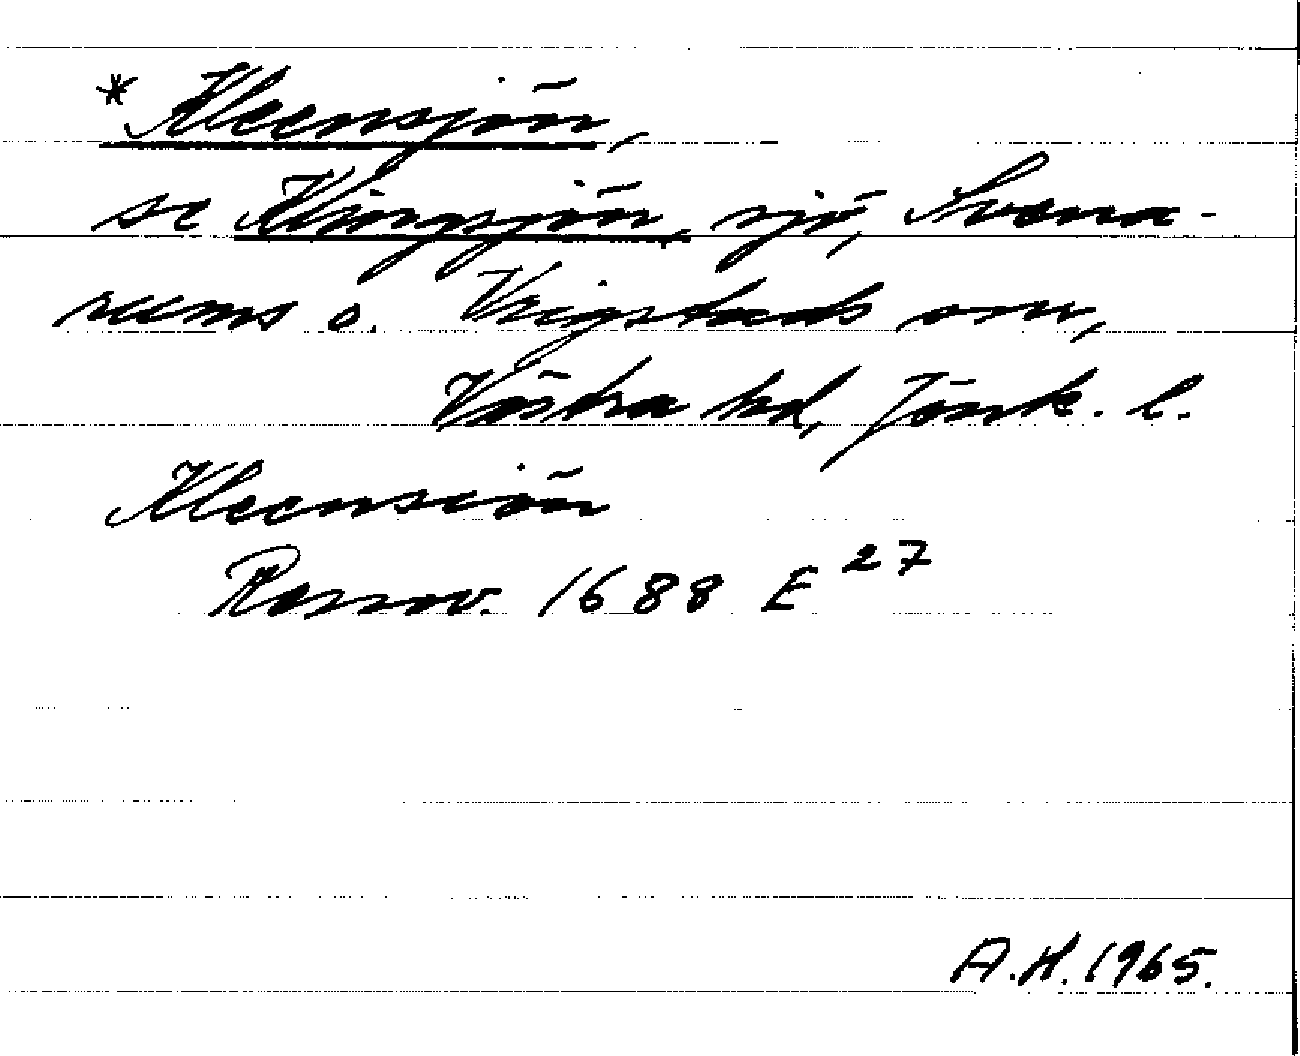 * Kleensjön,
se Klingsjön, sjö, Svena-
rums o. Vrigstads snr,
Västra hd, Jönk. l.
Kleensiön
Rannov. 1688 E 27
A.H. 1965.